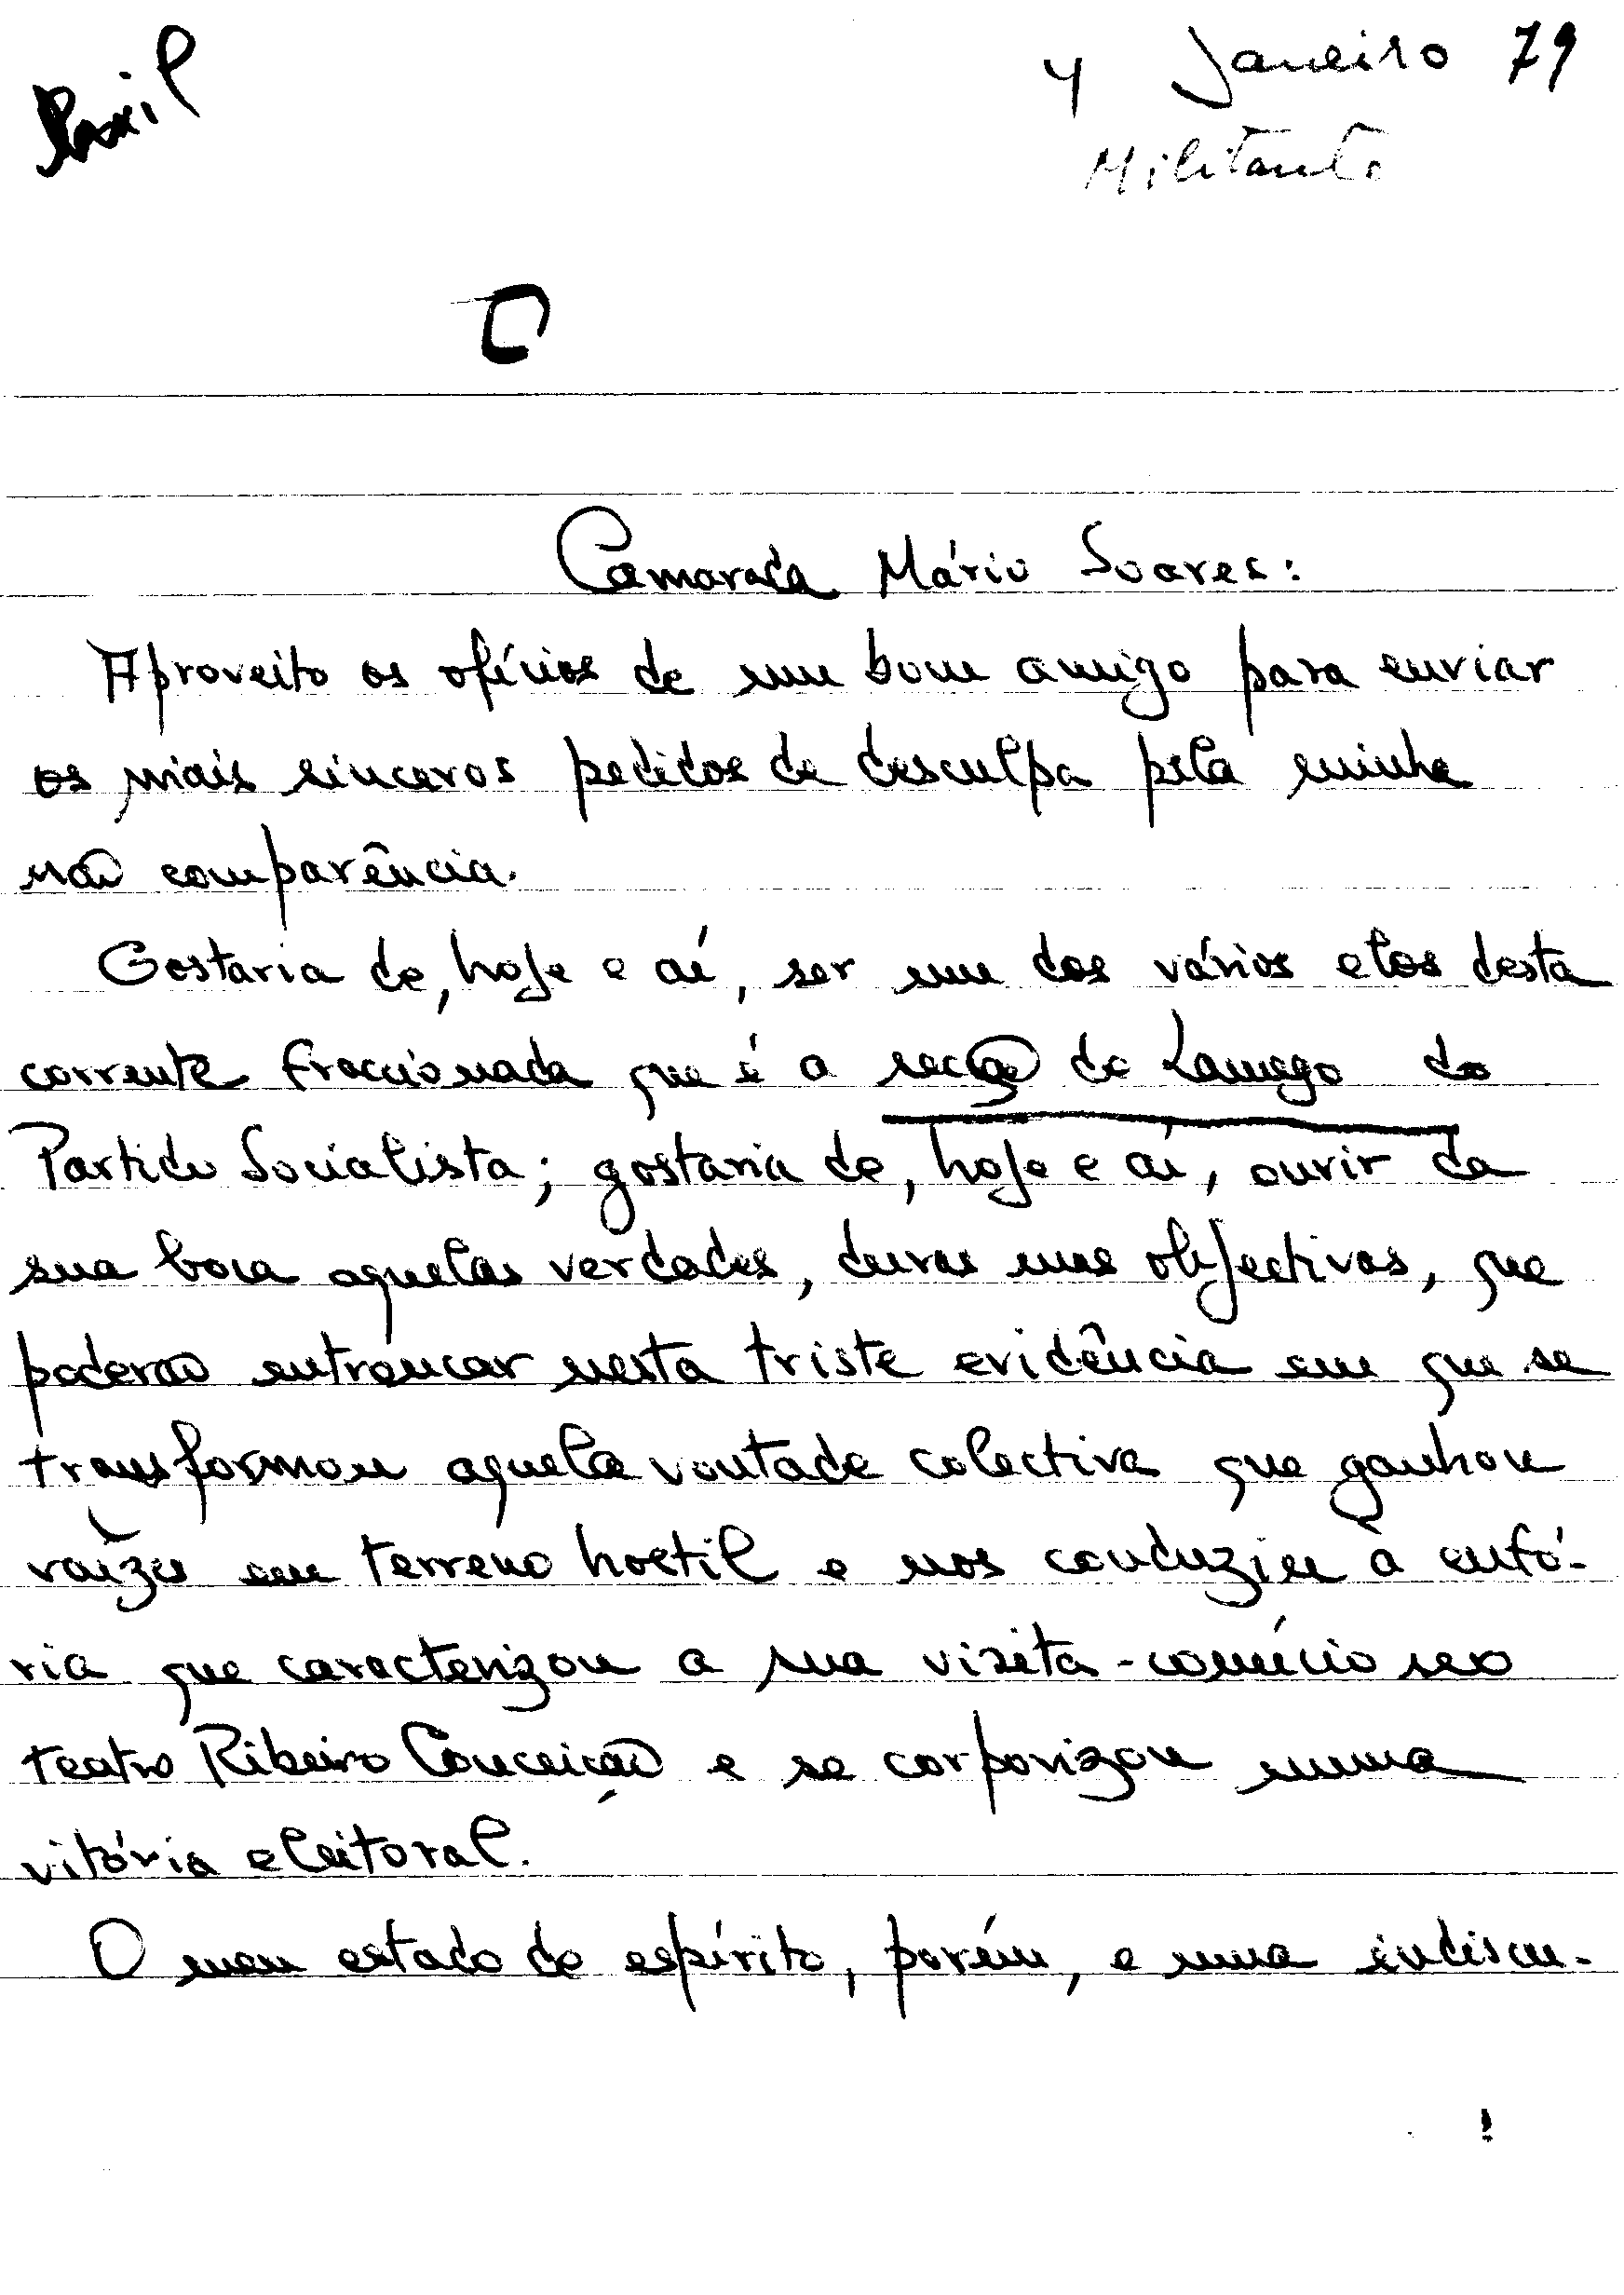 4 Janeiro 79
Militante
Camarada Mário Soares:
Aproveito os ofícios de um bom amigo para enviar
os mais sinceros pedidos de desculpa pela minha
não comparência.
Gostaria de, hoje e aí, ser um dos vários elos desta
corrente fraccionada que é a secção de Lamego do
Partido Socialista; gostaria de, hoje e aí, ouvir da
sua boca aquelas verdades, duras mas objectivas, que
poderão entroncar nesta triste evidência em que se
transformou aquela vontade colectiva que ganhou
raízes em terreno hostil e nos conduziu à eufó-
ria que caracterizou a sua visita-comício no
teatro Ribeiro Conceição e se corporizou numa
vitória eleitoral.
O meu estado de espírito, porém, e uma indiscu-